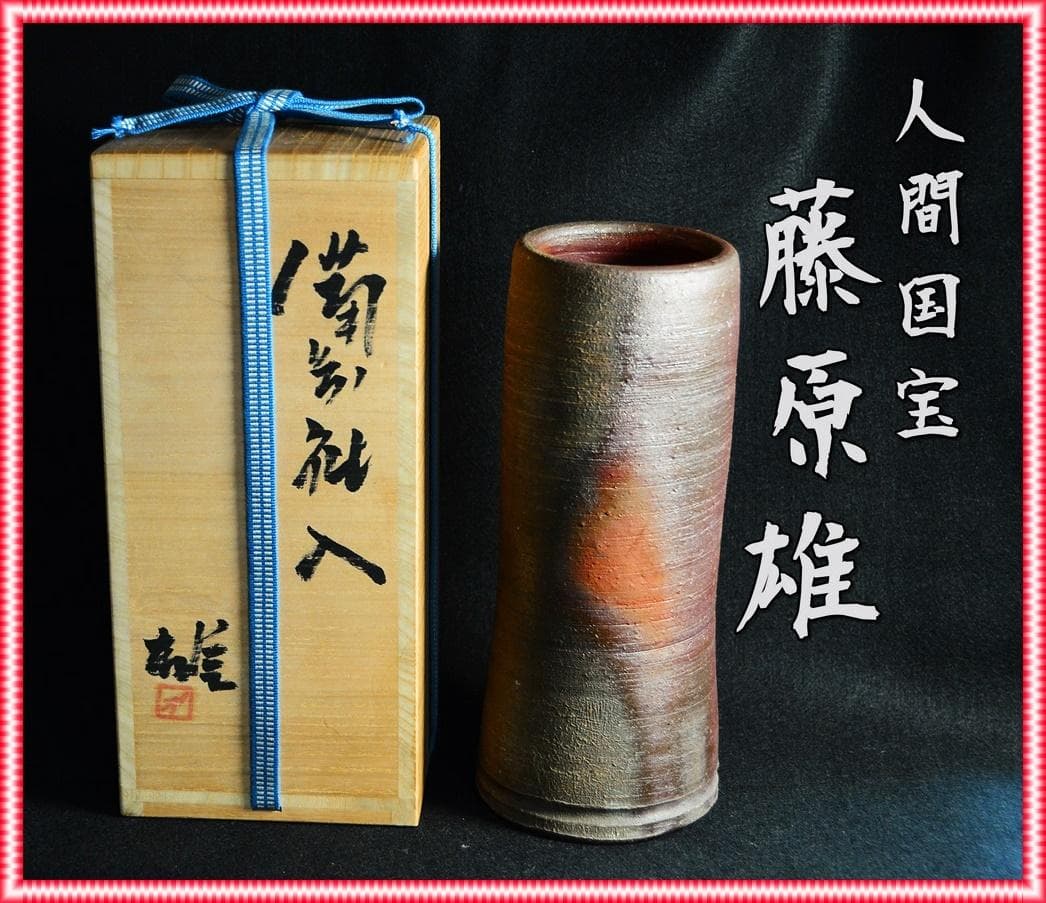 人間国宝
藤原雄
備前花入
雄